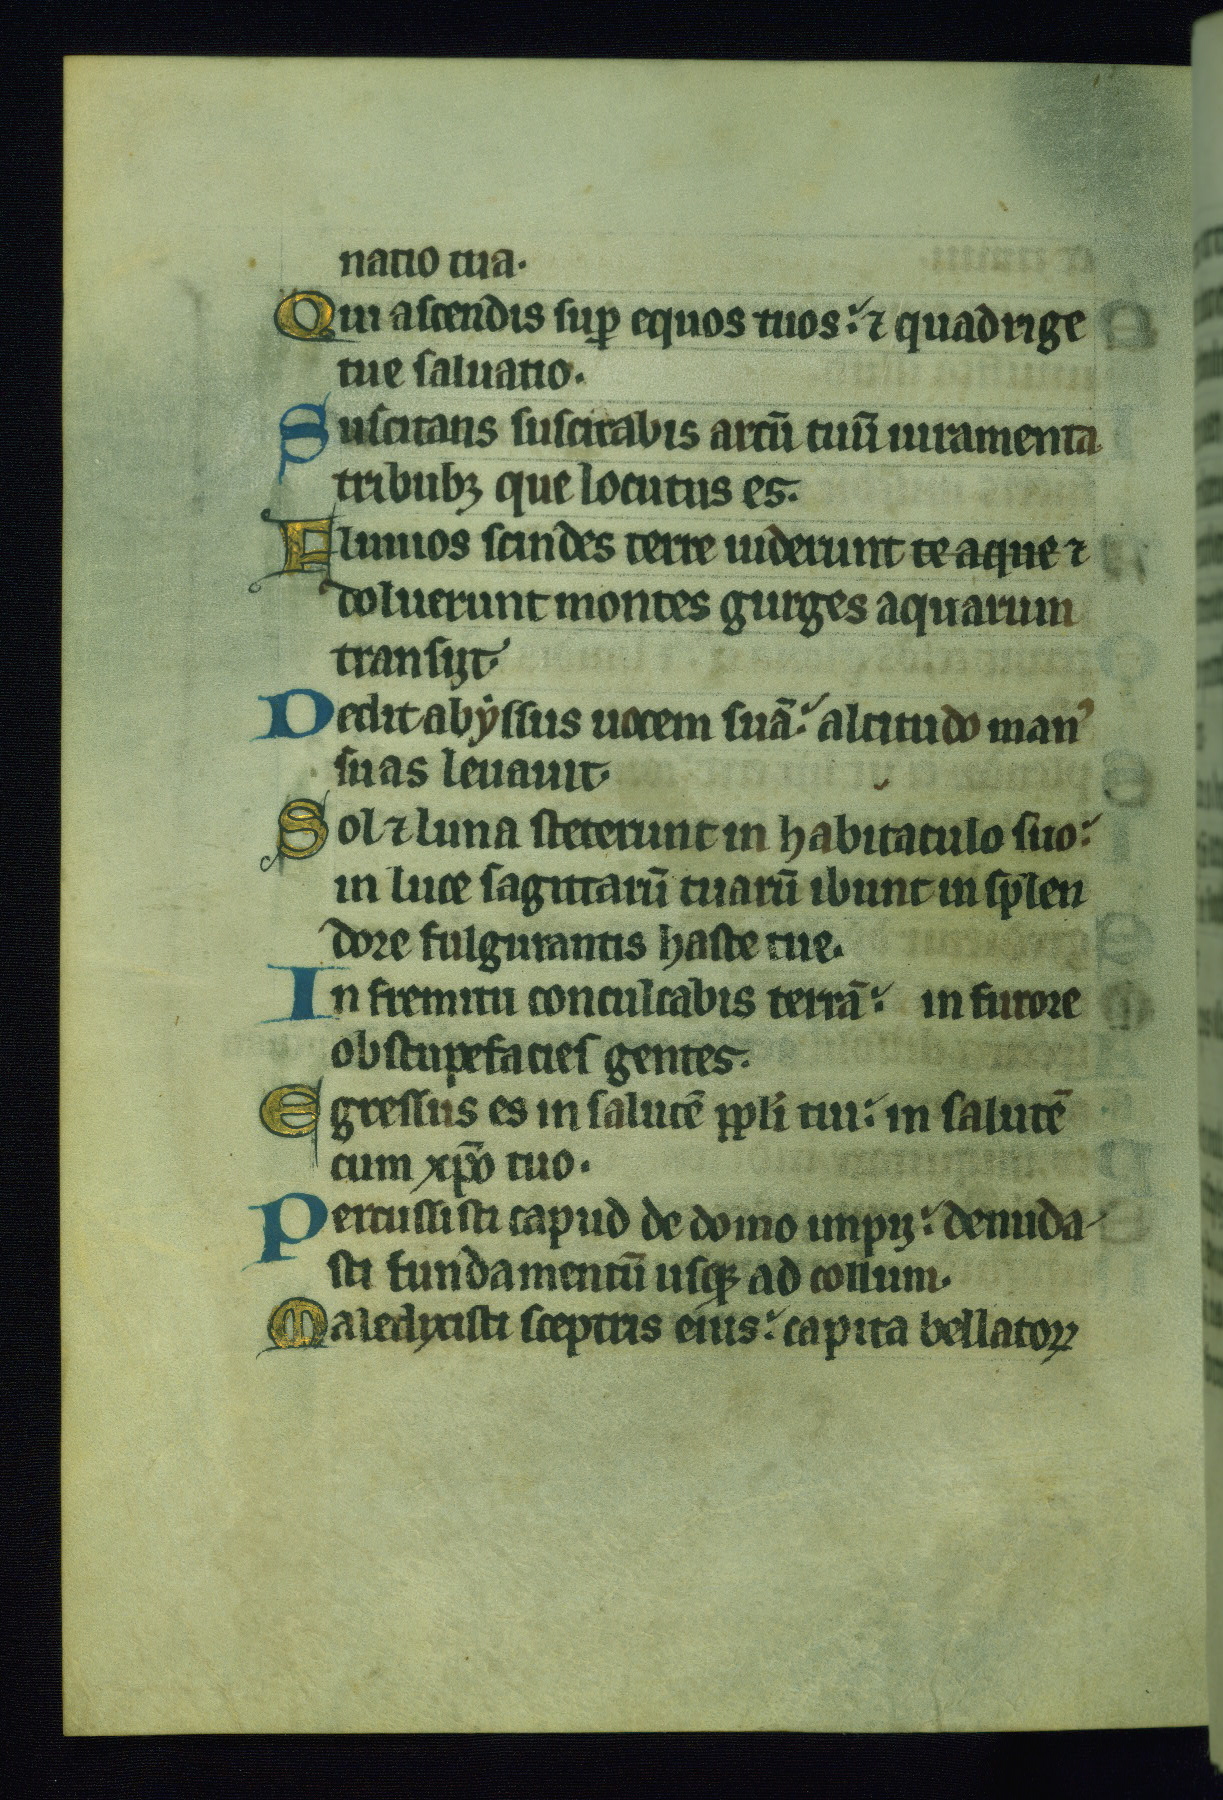 natio tua.
Qui ascendis suꝑ equos tuos: ⁊ quadrige
tue saluatio.
Suscitans suscitabis arcū tuū iuramenta
tribubꝫ que locutus es.
Fluuios scindes terre uiderunt te aque ⁊
doluerunt montes gurges aquarum
transijt.
Dedit abẏssus uocem suā: altitudo manꝰ
suas leuauit.
Sol ⁊ luna steterunt in habitaculo suo:
in luce sagittarū tuarū ibunt in splen
dore fulgurantis haste tue.
In fremitu conculcabis terrā: in furore
obstupefacies gentes.
Egressus es in salutē ppl̄i tui: in salutē
cum xp̄o tuo.
Percussisti capud de domo impij: denuda-
sti fundamentū usqꝫ ad collum.
Maledyxisti sceptris eius: capita bellatoꝝ